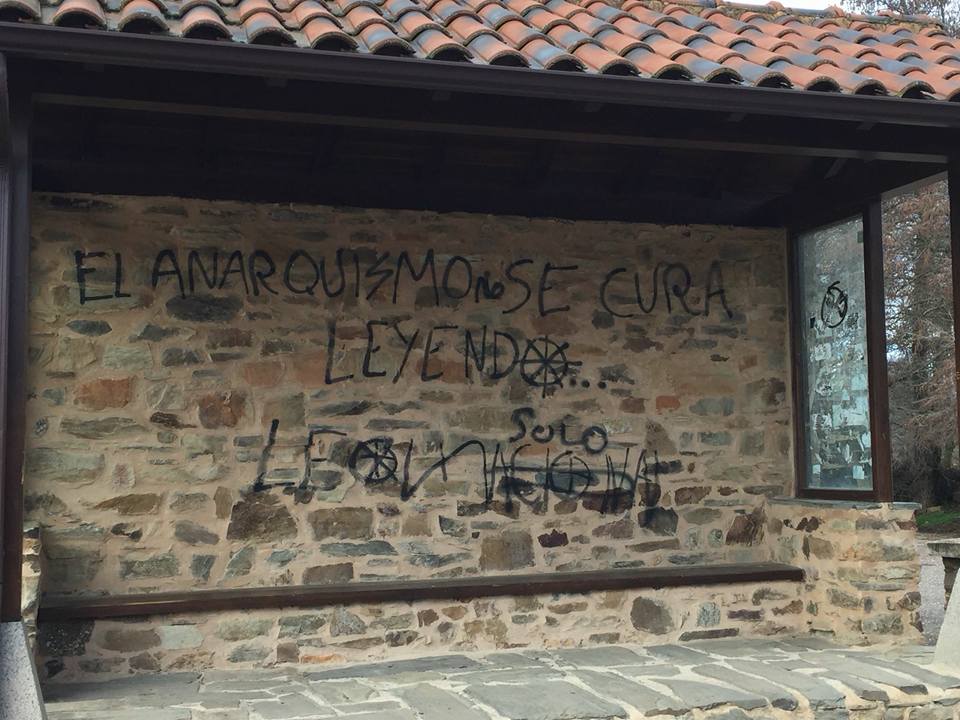 EL ANARQUISMO no SE CURA
LEYENDO...
SOLO
LEON NACIONAL